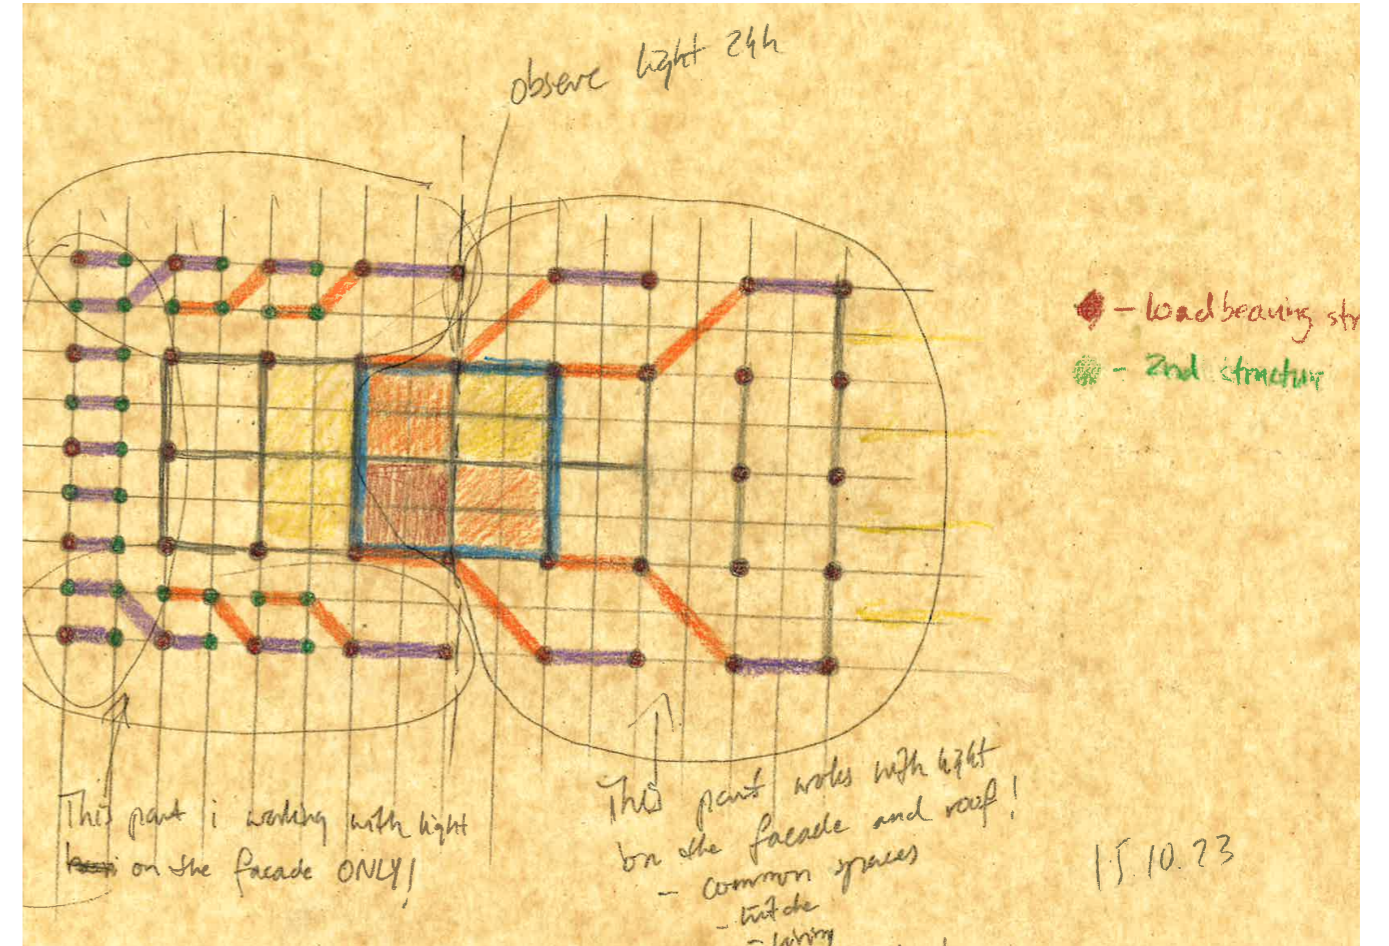 observe light 24h
- loadbearing str
- 2nd structure
This part i working with light
on the facade ONLY!
This part works with light
on the facade and roof!
- common spaces
- kitche
- living
15.10.23